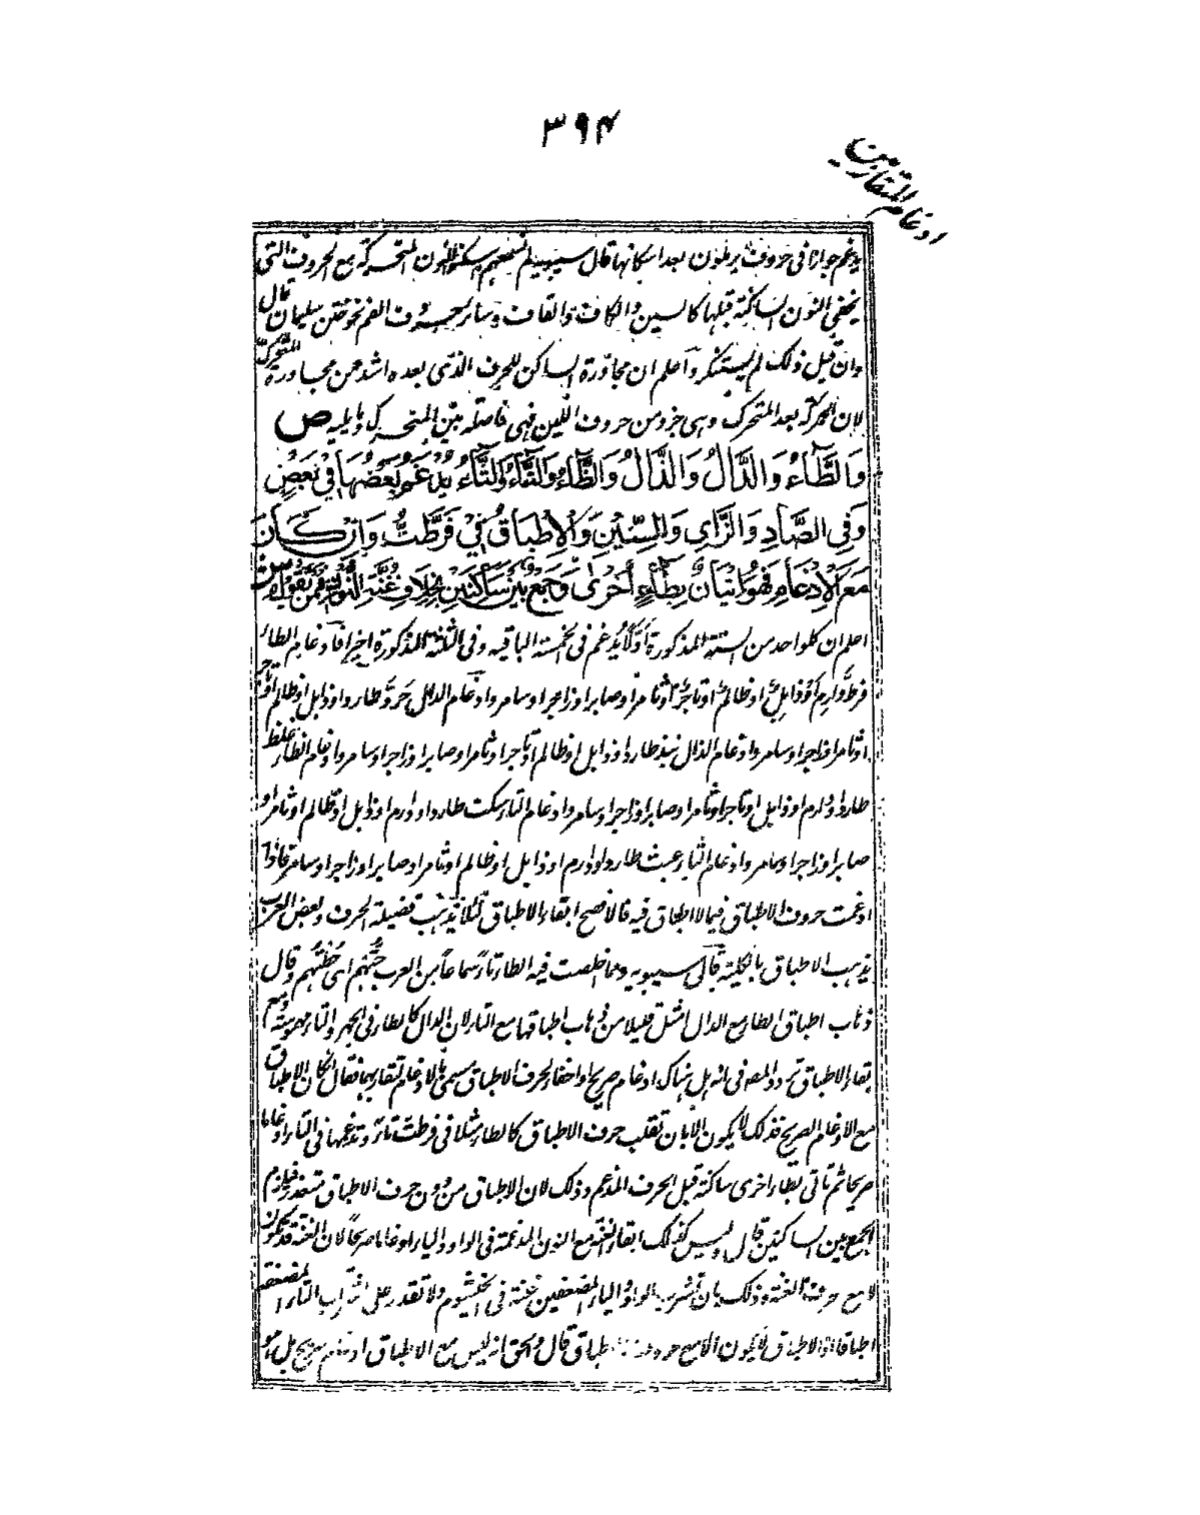 ٣٩٤
ادغام المتقاربين
يدغم جوازا فى حروف يرملون بعد اسكانها قال سيبويه لم نسمعهم اسكنوا النون المتحركة مع الحروف التى
يخفى النون الساكنة قبلها كالسين والكاف والقاف وسائر حروف الفم نحو ختن سليمان قال
وان قيل ذلك لم يستنكر واعلم ان مجاورة الساكن للحرف الذى بعده اشد من مجاورة المتحرك
لان الحركة بعد المتحرك وهى جزء من حروف اللين فهى فاصلة بين المتحرك وما يليه ص
وَالطَّاءُ وَالدَّالُ وَالذَّالُ وَالظَّاءُ وَالتَّاءُ وَالثَّاءُ يُدْغَمُ بَعْضُهَا فِي بَعْضٍ
وَفِي الصَّادِ وَالزَّاىِ وَالسِّيْنِ وَالْاِطْبَاقُ فِيْ فَرَّطْتُّ وَاِنْ كَانَ
مَعَ الْاِدْغَامِ فَهُوَ اِتْيَانٌ بِطَاءٍ اُخْرٰى وَجَمْعٌ بَيْنَ سَاكِنَيْنِ بِخِلَافِ غُنَّةِ النُّوْنِ فِىْ مَنْ يَّقُوْلُ ش
اعلم ان كلواحد من الستة المذكورة أوّلا يُدغم فى الخمسة الباقيه وفى الثلثة المذكورة اخيرا فادغام الطاء
فرط دارم او ذابل او ظالم او تاجر او ثامر او صابرا وزاجرا وسامر وادغام الدال جرد طاردا وذابل او ظالم او تاجر
او ثامرا وزاجرا وسامر وادغام الذال نبذ طاردا وذابل او ظالم او تاجرا وثامرا وصابرا وزاجرا وسامر وادغام الظاء غلظ
طاردا ودارم او ذابل او تاجرا وثامرا وصابرا وزاجرا وسامر وادغام التاء سكت طاردا ودارم او ذابل او ظالم او ثامر او
صابرا وزاجرا وسامر وادغام الثاء عبث طاردا ودارم او ذابل او ظالم او ثامرا وصابرا وزاجرا وسامر فاذا
ادغمت حروف الاطباق فيما لا اطباق فيه فالافصح ابقاء الاطباق لئلا تذهب فضيلة الحرف وبعض العرب
يذهب الاطباق بالكلية قال سيبويه ومما خلصت فيه الطاء تاءً سماعاً من العرب حُتّهُم اى حُطْتُهم وقال
ذهاب اطباق الطاء مع الدال امثل قليلا من ذهاب اطباقها مع التاء لان الدال كالطاء فى الجهر والتاء مهموسة ومع
بقاء الاطباق تردد المصـ فى انه هل هناك ادغام صريح او اخفاء لحرف الاطباق مسمى بالادغام لتقاربهما فقال ان كان الاطباق
مع الادغام الصريح فذلك لا يكون الا بان تقلب حرف الاطباق كالطاء مثلا فى فرطت تاءً وتدغمها فى التاء ادغاما
صريحا ثم تاتى بطاء اخرى ساكنة قبل الحرف المدغم وذلك لان الاطباق من دون حرف الاطباق متعذر فيلزم
الجمع بين الساكنين قال وليس كذلك ابقاء الغنة مع النون المدغمة فى الواو والياء ادغاما صريحا لان الغنة قد تكون
لا مع حرف الغنة وذلك بان تشرب الواو والياء المضعفين غنة فى الخيشوم ولا تقدر على اشراب التاء المضعفة
اطباقا اذ الاطباق لا يكون الا مع حروف الاطباق قال والحق انه ليس مع الاطباق ادغام صريح بل هو